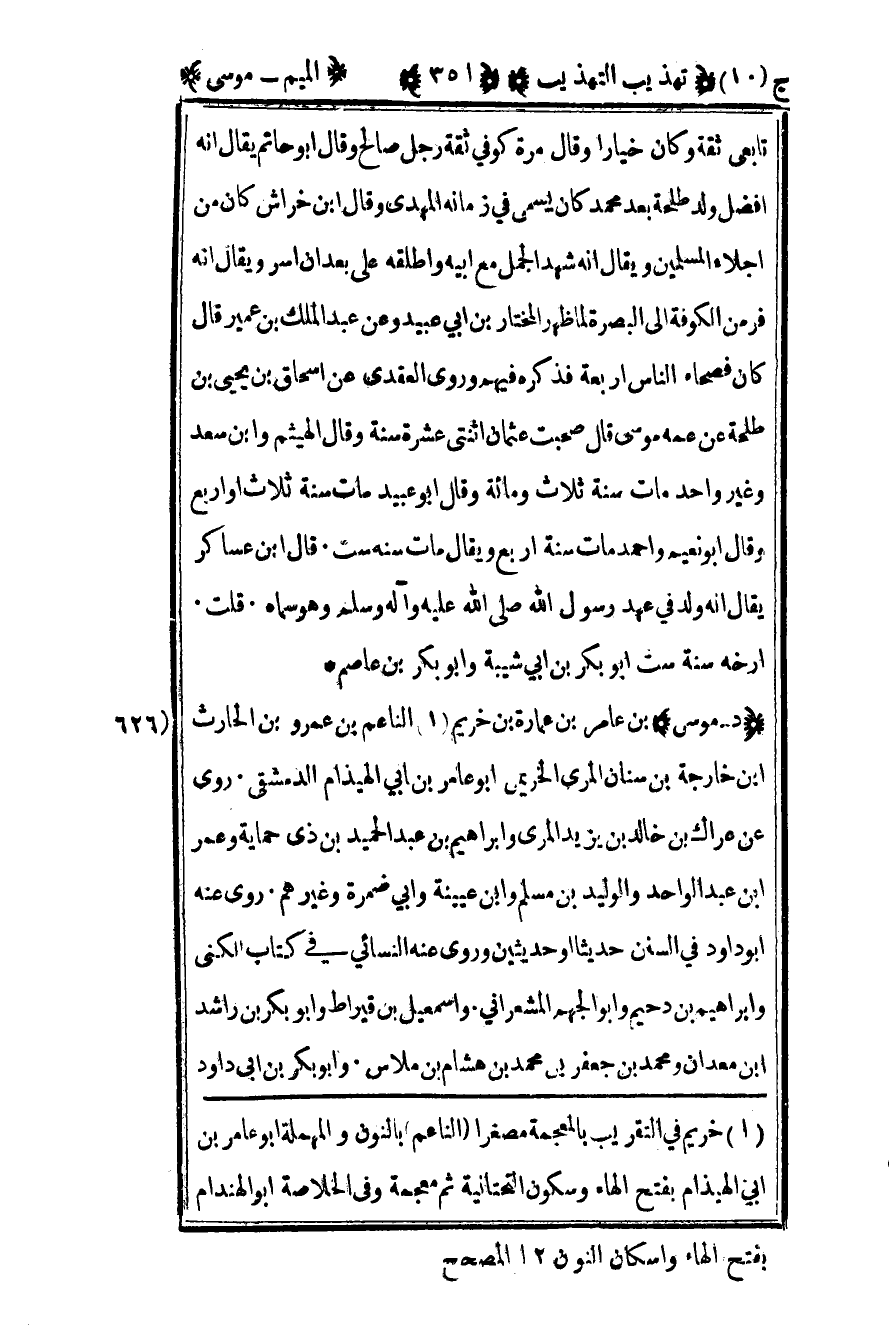 ج (١٠) ﴿ تهذيب التهذيب ﴾ ﴿ ٣٥١ ﴾ ﴿ الميم ـ موسى ﴾
تابعى ثقة وكان خيارا وقال مرة كوفي ثقة رجل صالح وقال ابو حاتم يقال انه
افضل ولد طلحة بعد محمد كان يسمى في زمانه المهدى وقال ابن خراش كان من
اجلاء المسلمين ويقال انه شهد الجمل مع ابيه واطلقه على بعد ان اسر ويقال انه
فر من الكوفة الى البصرة لما ظهر المختار بن ابي عبيد وعن عبد الملك بن عمير قال
كان فصحاء الناس اربعة فذكره فيهم وروى العقدى عن اسحاق بن يحيى بن
طلحة عن عمه موسى قال صحبت عثمان اثنتى عشرة سنة وقال الهيثم وابن سعد
وغير واحد مات سنة ثلاث ومائة وقال ابو عبيد مات سنة ثلاث او اربع
وقال ابو نعيم واحمد مات سنة اربع ويقال مات سنه ست ٠ قال ابن عساكر
يقال انه ولد في عهد رسول الله صلى الله عليه وآله وسلم وهو سماه ٠ قلت ٠
ارخه سنة ست ابو بكر بن ابي شيبة وابو بكر بن عاصم*
﴿ د ـ موسى ﴾ بن عامر بن عمارة بن خريم (١) الناعم بن عمرو بن الحارث (٦٢٦
ابن خارجة بن سنان المرى الخريمى ابو عامر بن ابي الهيذام الدمشقى ٠ روى
عن عراك بن خالد بن يزيد المرى وابراهيم بن عبد الحميد بن ذى حماية وعمر
ابن عبد الواحد والوليد بن مسلم وابن عيينة وابي ضمرة وغيرهم ٠ روى عنه
ابو داود في السنن حديثا او حديثين وروى عنه النسائي في كتاب الكنى
وابراهيم بن دحيم وابو الجهم المشعراني ٠ واسمعيل بن قيراط وابو بكر بن راشد
ابن معدان ومحمد بن جعفر بن محمد بن هشام بن ملاس ٠ وابو بكر بن ابى داود
(١) خريم في التقريب بالمعجمة مصغرا (الناعم) بالنون و المهملة ابو عامر بن
ابي الهيذام بفتح الهاء وسكون التحتانية ثم معجمة وفى الخلاصة ابو الهندام
بفتح الهاء واسكان النون ١٢ المصحح